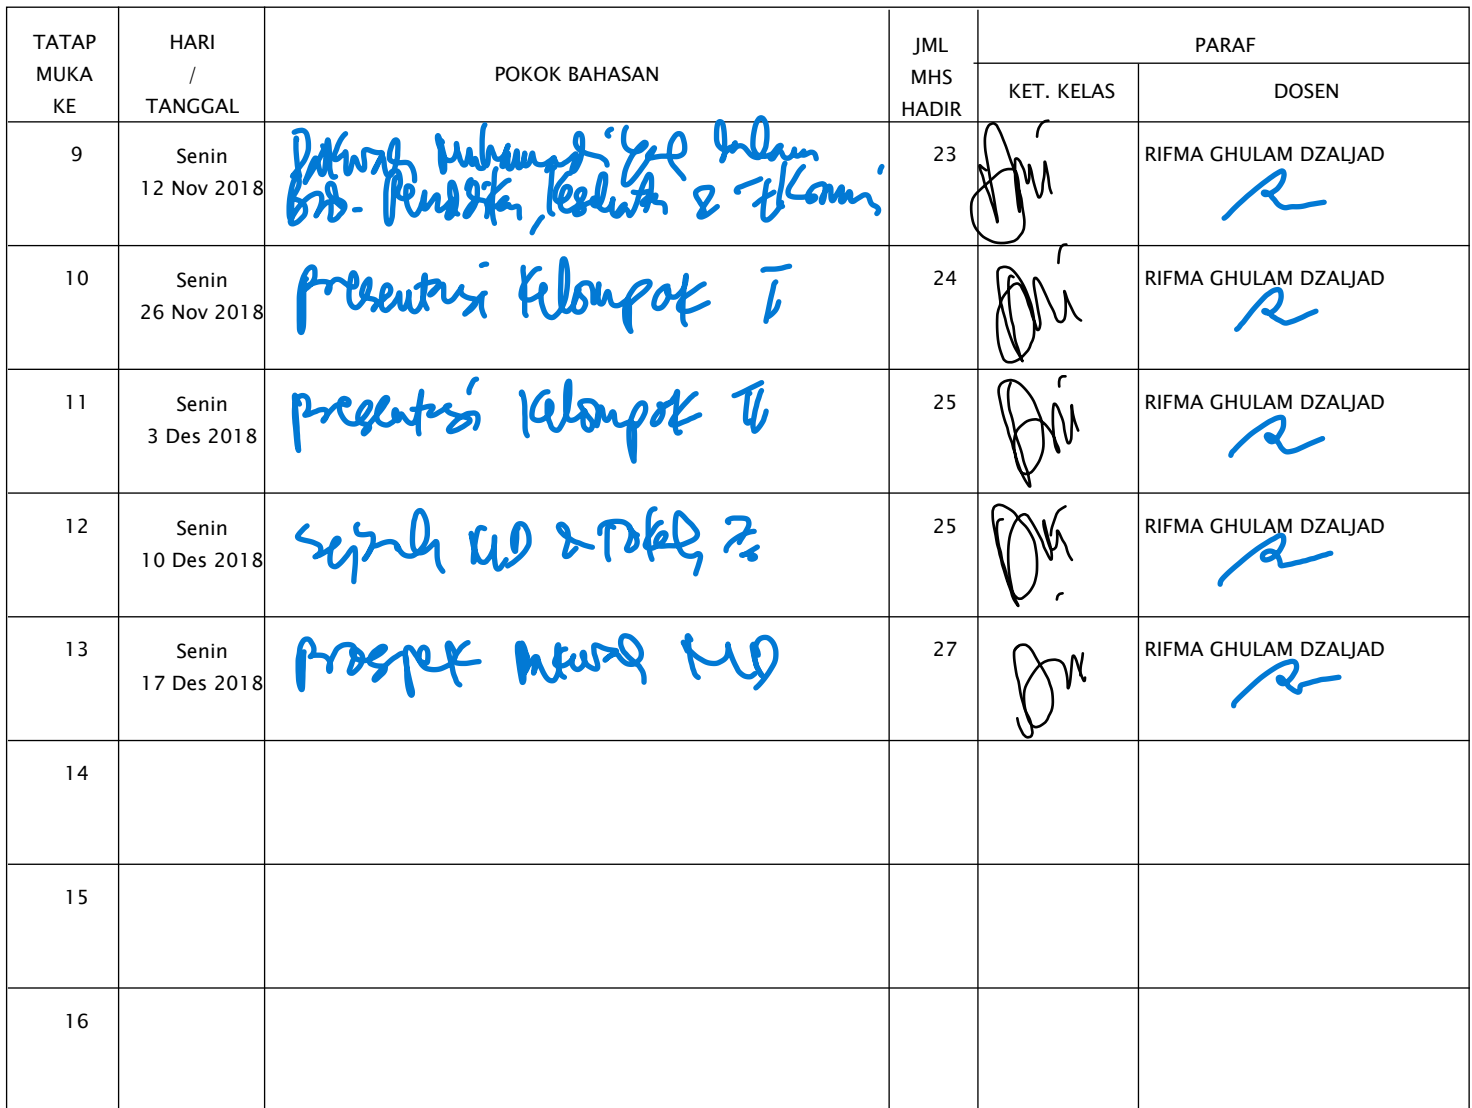 TATAP MUKA KE HARI / TANGGAL POKOK BAHASAN JML MHS HADIR PARAF
KET. KELAS DOSEN
9 Senin 12 Nov 2018 Dakwah Muhammadiyah dalam 23 RIFMA GHULAM DZALJAD
bid. Pendidikan, Kesehatan & Ekonomi
10 Senin 26 Nov 2018 presentasi Kelompok I 24 RIFMA GHULAM DZALJAD
11 Senin 3 Des 2018 presentasi Kelompok II 25 RIFMA GHULAM DZALJAD
12 Senin 10 Des 2018 Sejarah MD & 25 RIFMA GHULAM DZALJAD
13 Senin 17 Des 2018 prospek Dakwah MD 27 RIFMA GHULAM DZALJAD
14
15
16